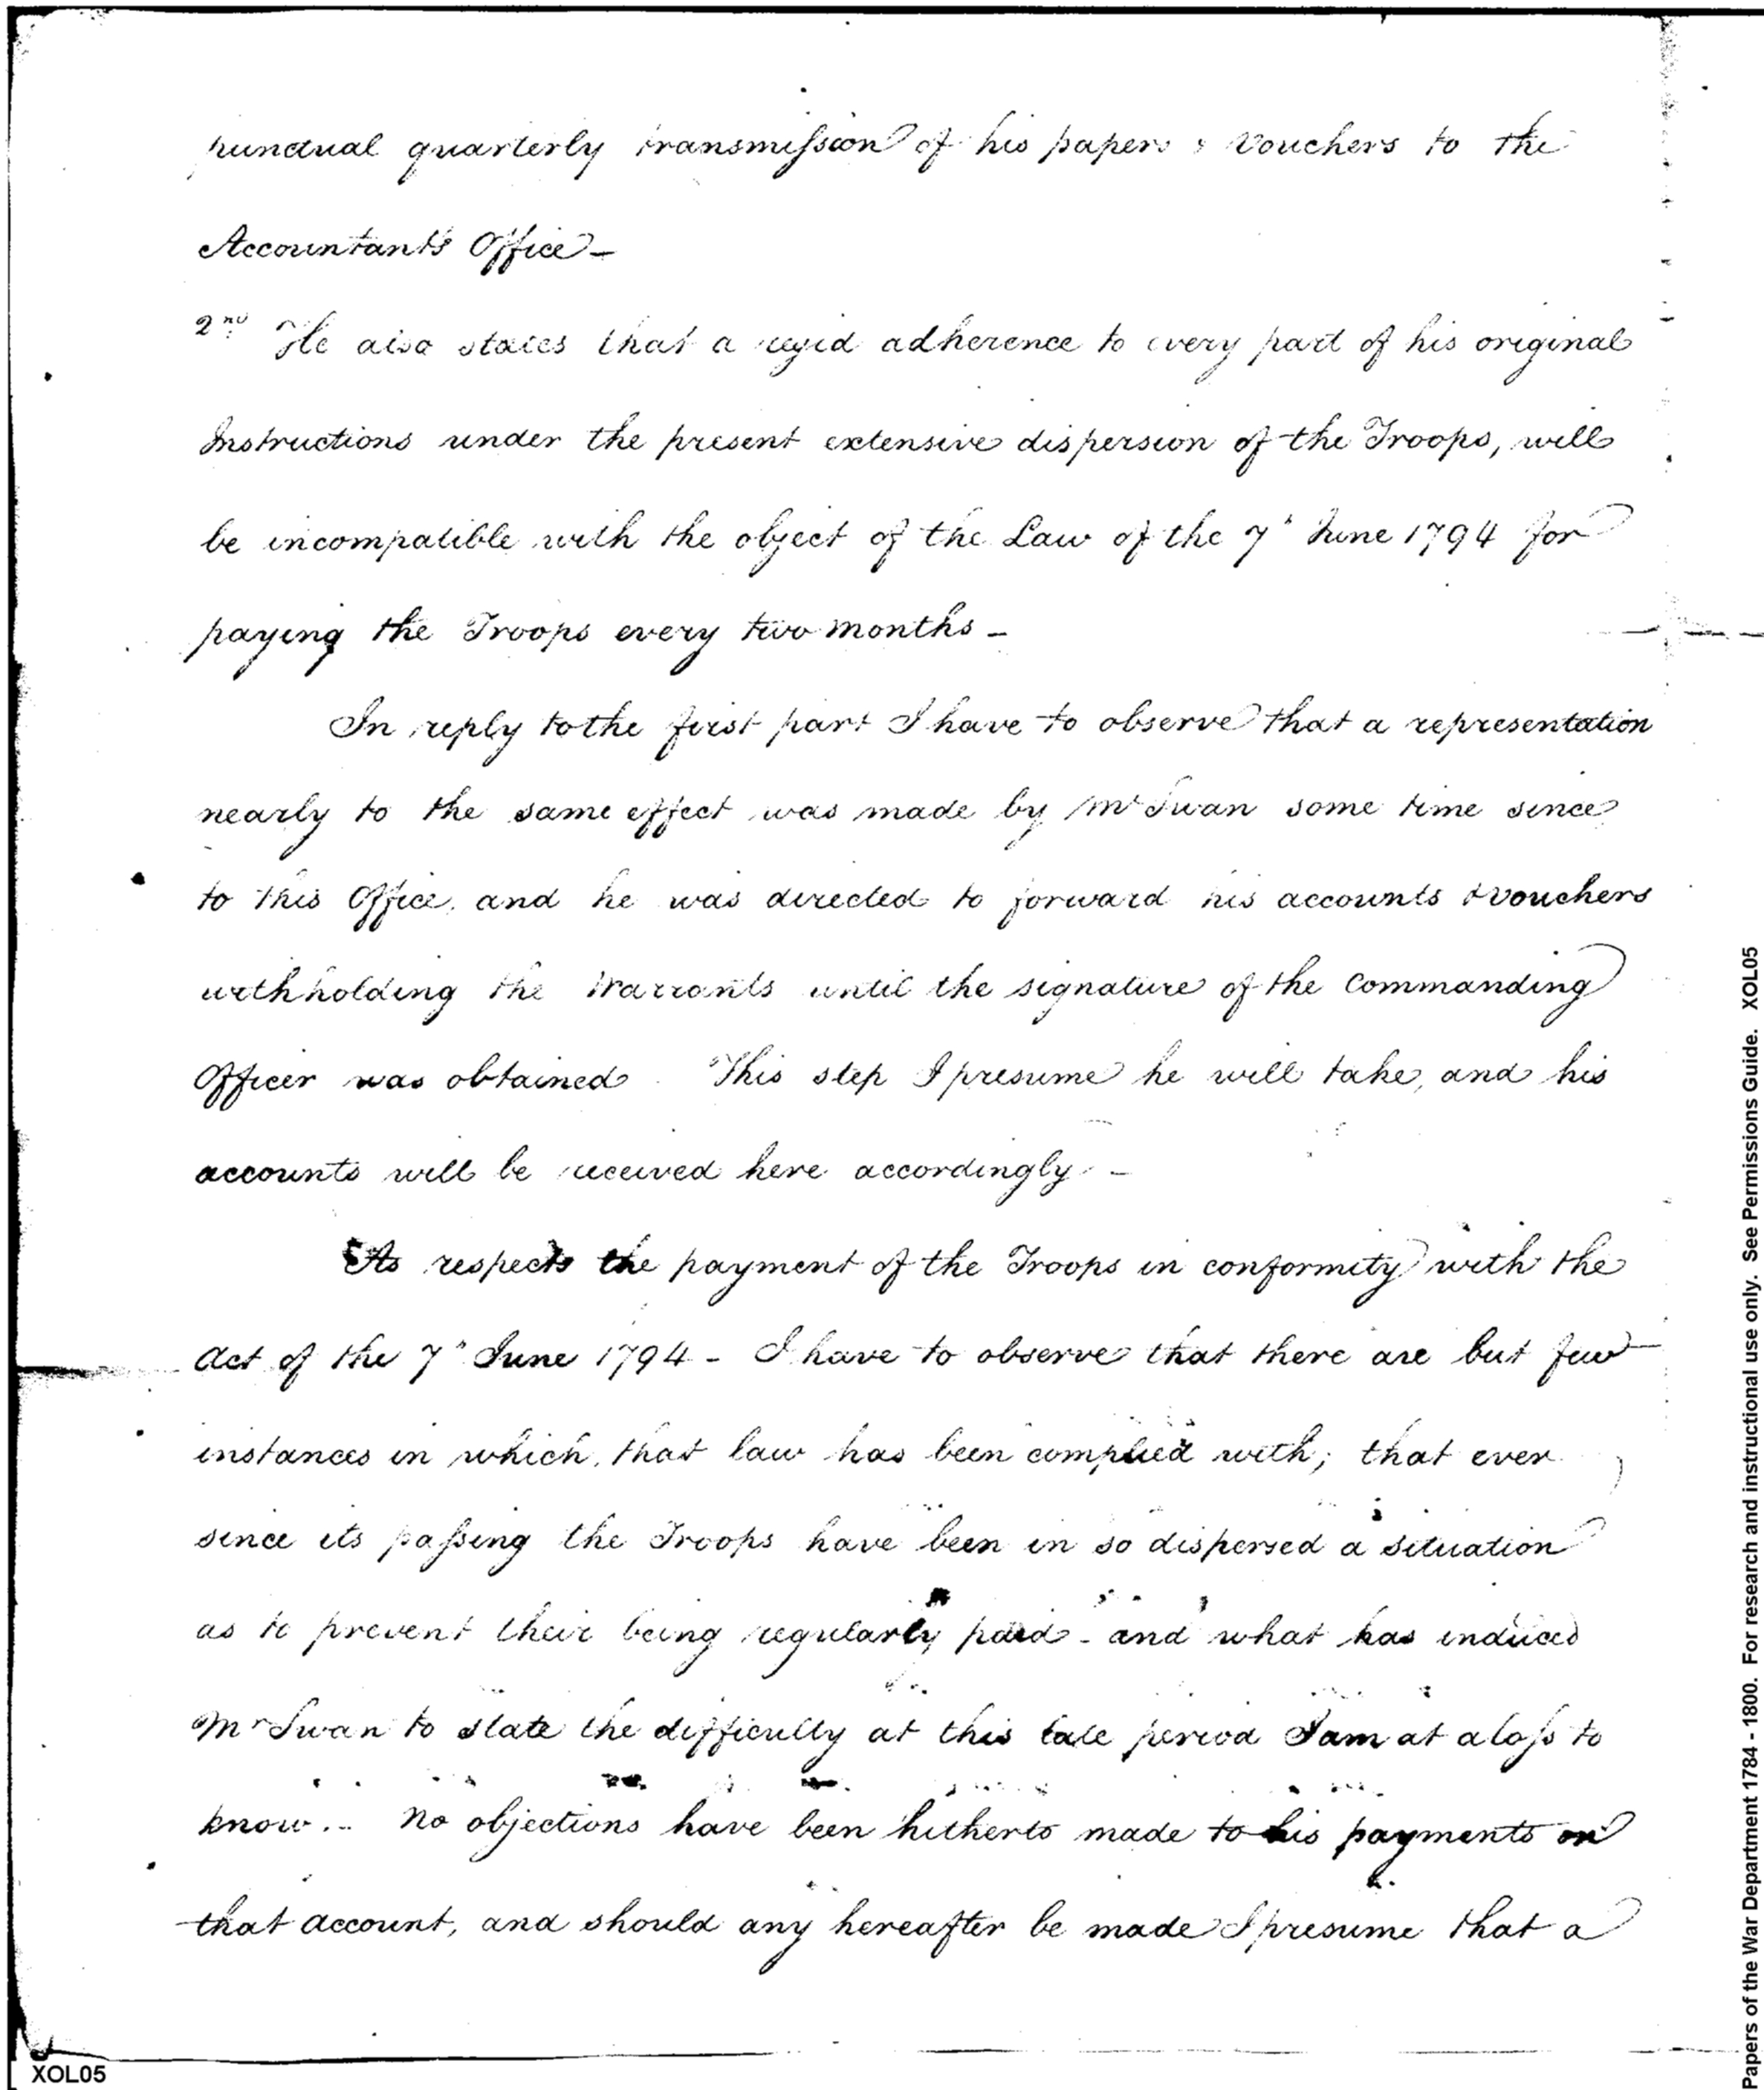 punctual quarterly transmission of his papers & Vouchers to the
Accountants Office –
2nd He also states that a rigid adherence to every part of his original
Instructions under the present extensive dispersion of the Troops, will
be incompatible with the object of the Law of the 7th June 1794 for
paying the Troops every two months –
In reply to the first part I have to observe that a representation
nearly to the same effect was made by Mr Swan some time since
to this Office, and he was directed to forward his accounts & vouchers
withholding the Warrants until the signature of the Commanding
Officer was obtained. This step I presume he will take, and his
accounts will be received here accordingly –
As respects the payment of the Troops in conformity with the
Act of the 7th June 1794 – I have to observe that there are but few
instances in which that law has been complied with; that ever
since its passing the Troops have been in so dispersed a situation
as to prevent their being regularly paid – and what has induced
Mr Swan to state the difficulty at this late period I am at a loss to
know. – No objections have been hitherto made to his payments on
that account, and should any hereafter be made I presume that a
XOL05
Papers of the War Department 1784 - 1800. For research and instructional use only. See Permissions Guide. XOL05